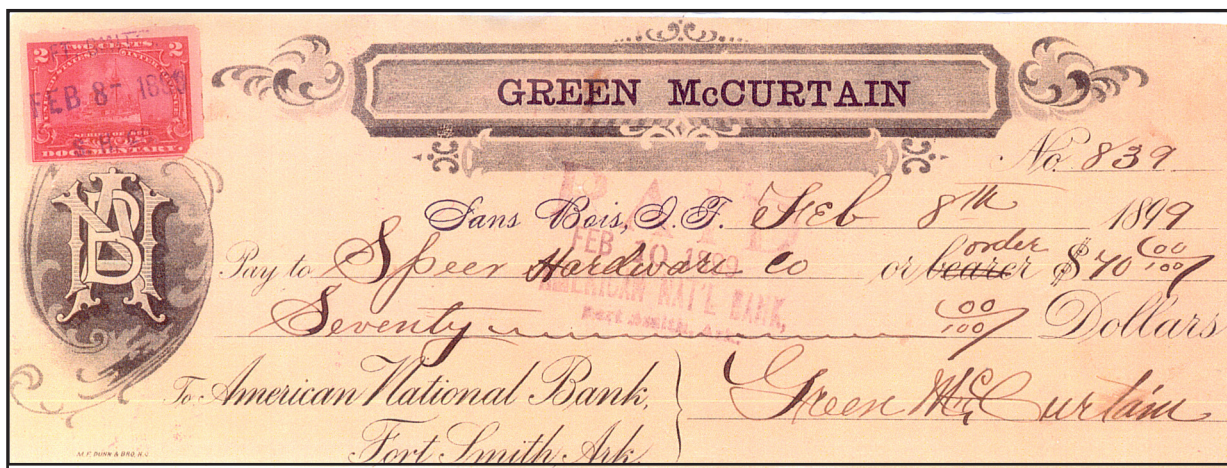 2 TWO CENTS 2
FEB 8- 1899
DOCUMENTARY.
GREEN McCURTAIN
No. 839
Sans Bois, I. T. Feb 8th 1899
PAID
FEB 10 1899
AMERICAN NAT'L BANK,
Fort Smith, Ark.
Pay to Speer Hardware Co or bearer order $70 00/100
Seventy 00/100 Dollars
To American National Bank,
Fort Smith Ark.
Green McCurtain
ANB
M. F. DUNN & BRO. K.C.